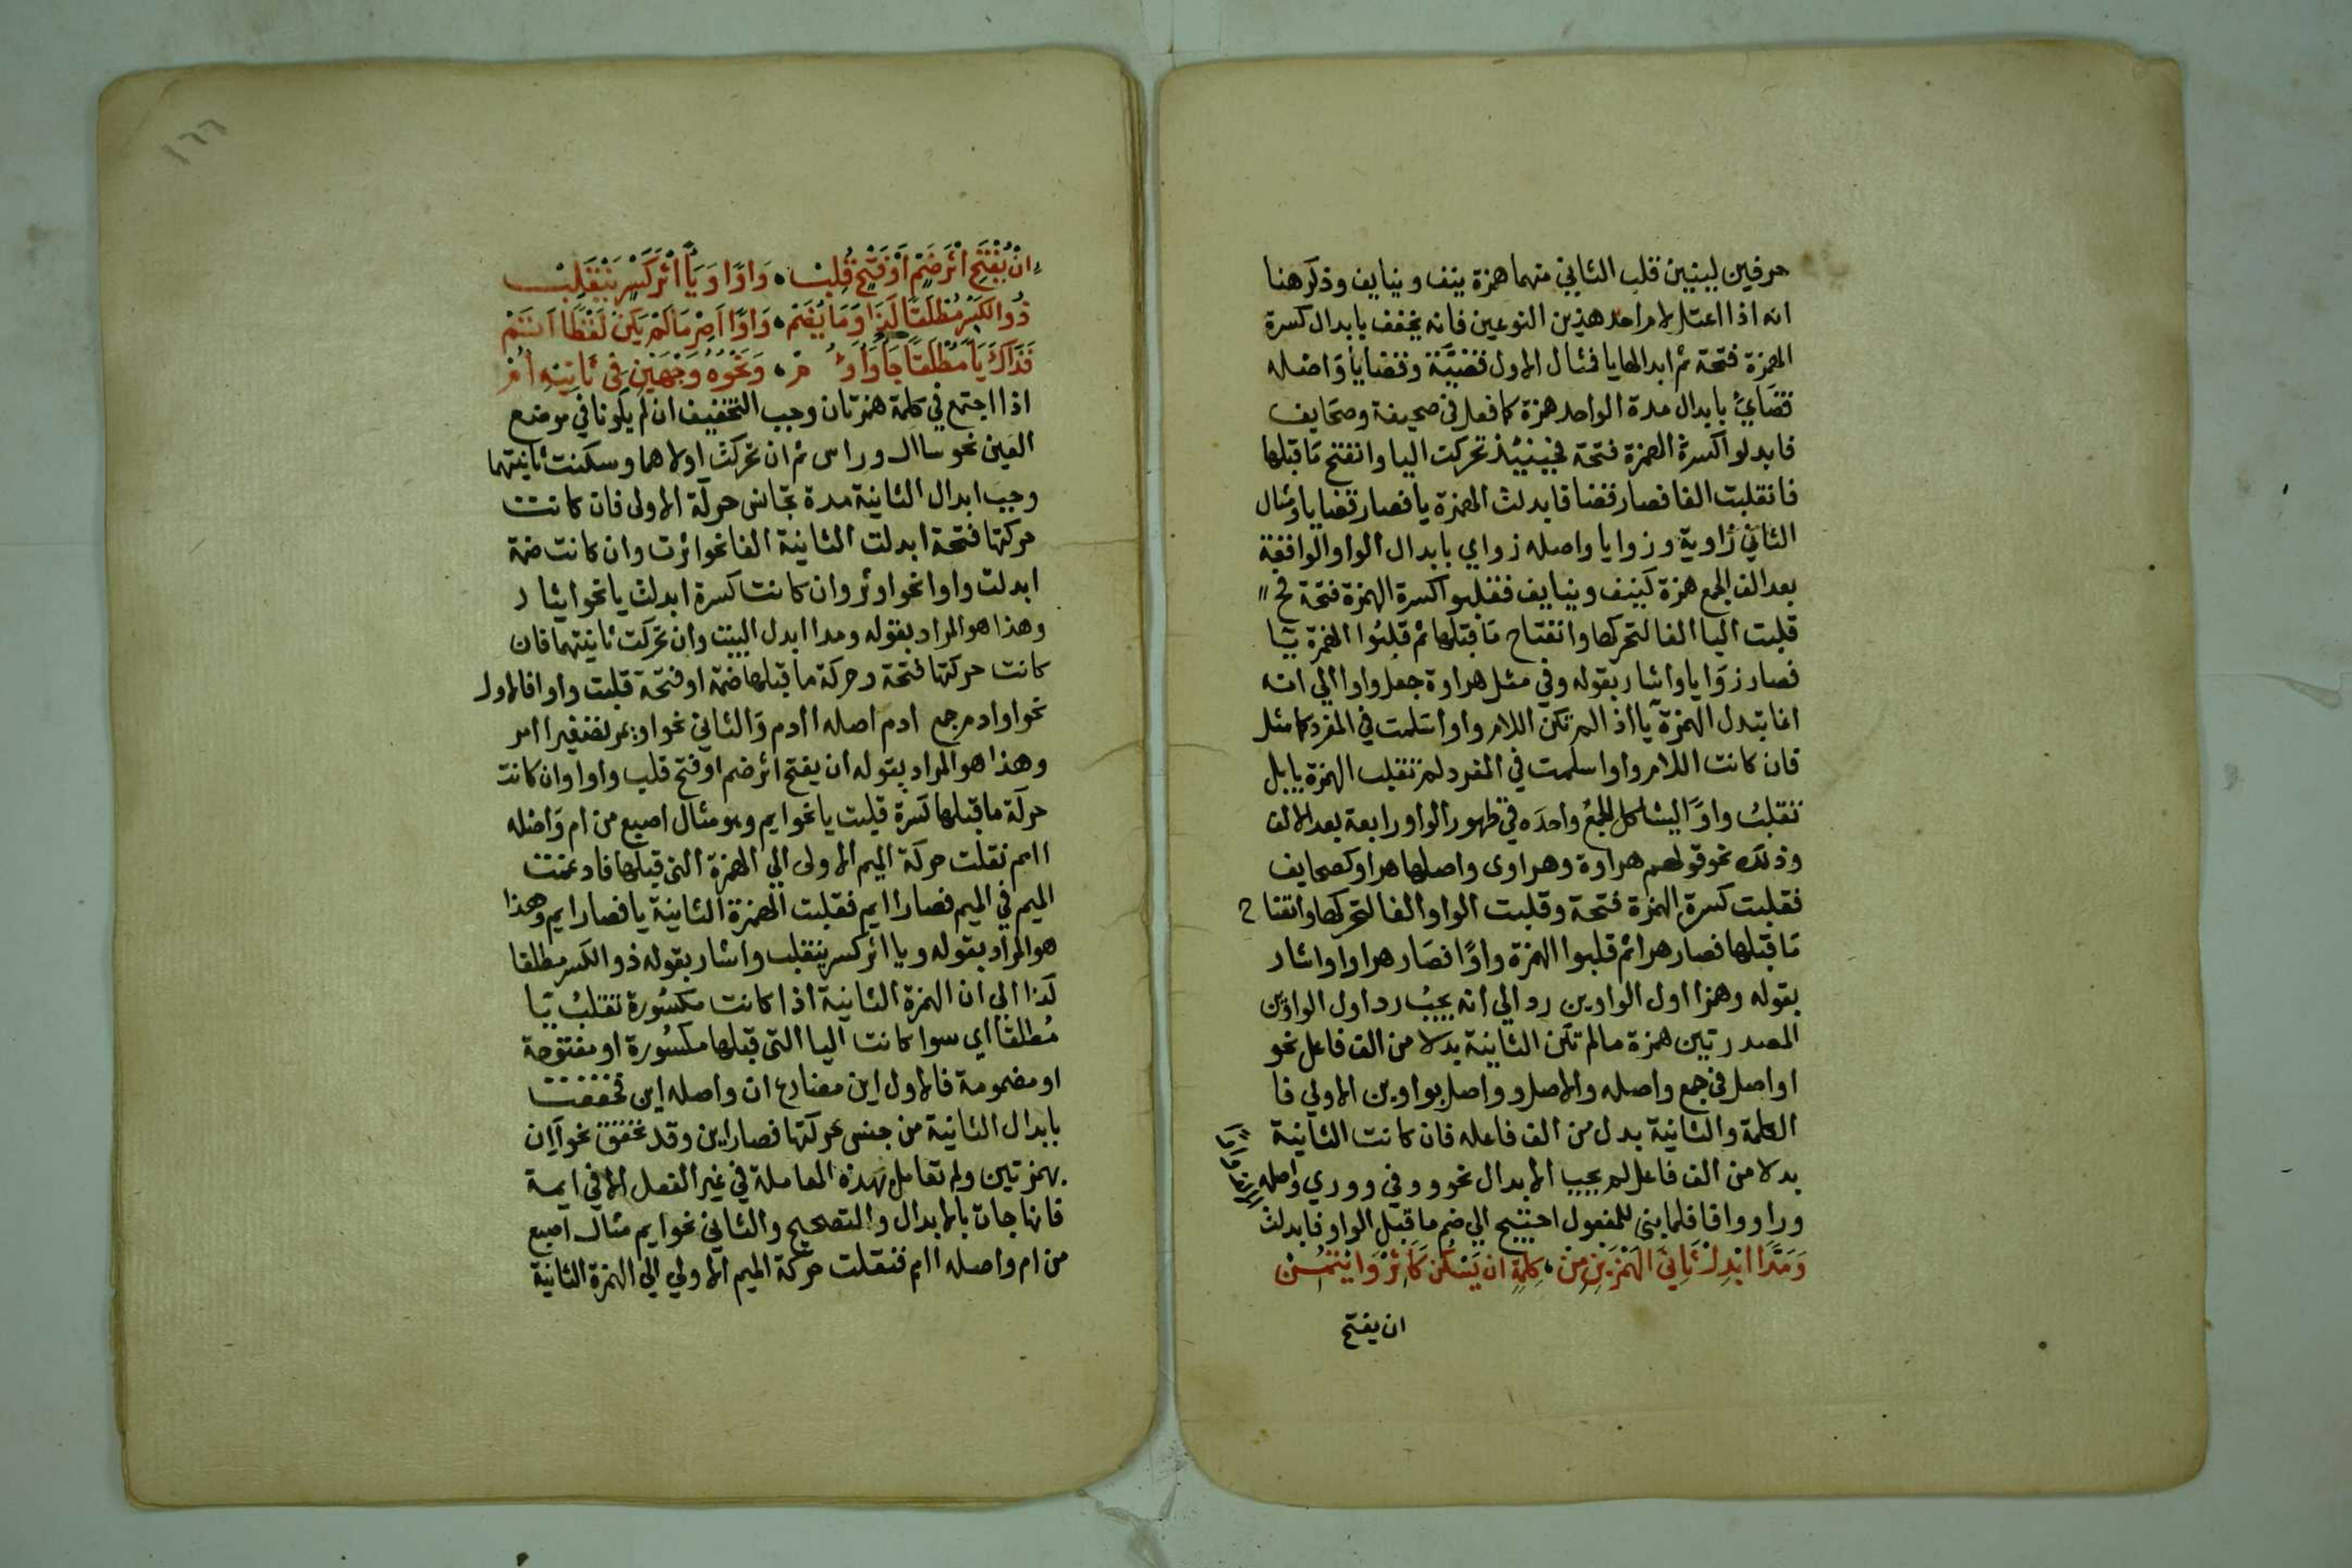 حرفين لينين قلب الثاني منهما همزة ينف وينايف وذكر هنا
انه اذا اعتل لام احد هذين النوعين فانه يخفف بابدال كسرة
الهمزة فتحة ثم ابدالها يا فمثال الاول قضيَّة وقضايا وَاصله
قضَايئ بابدال مدة الواحد همزة كما فعل في صحيفة وصحَايف
فابدلوا كسرة الهمزة فتحة فحينيئذ تحركت اليا وانفتح مَا قبلها
فانقلبت الفا فصار قضاا فابدلت الهمزة يا فصار قضايا ومثال
الثاني زَاوية وزوايا واصله زوايي بابدال الواو الواقعة
بعد الف الجمع همزة كنيف وينايف فقلبوا كسرة الهمزة فتحة فح
قلبت اليا الفا لتحركها وانفتاح مَا قبلها ثم قلبُوا الهمزة يَا
فصار زوَايا واشار بقوله وفي مثل هراوة جعل واوا الي انه
انما تبدل الهمزة يَا اذا لم تكن اللام واوا سَلمت في المفرد كما مثل
فان كانت اللام واوا سلمت في المفرد لم تقلب الهمزة يا بل
تقلبُ واوًا ليشاكل الجمع واحدَه في ظهور الواو رابعة بعد الالف
وذلك نحو قولهم هراوة وهراوى واصلها هراو كصحايف
فقلبت كسرة الهمزة فتحة وقلبت الواو الفا لتحركها وانفتاح
مَا قبلها فصار هراا ثم قلبوا الهمزة واوًا فصَار هراوا واشار
بقوله وهمزا اول الواوين رد الي انه يجبُ رد اول الواوَين
المصدرتين همزة مالم تكن الثانية بدلا من الف فاعل نحو
اواصل في جمع واصله والاصل وواصل بواوين الاولي فا
الكلمة والثانية بدل من الف فاعله فان كانت الثانية
بدلا من الف فاعل لم يجب الابدال نحو ووفي ووري واصله
ورا ووافا فلما بنى للمفعول احتيج الي ضم ما قبل الواو فابدلت
وَمَدًّا ابْدِلْ ثَانِيَ الهَمْزَيْنِ مِنْ ، كِلْمَةٍ ان يَسْكُنْ كَاثِرْ وَايْتُمِنْ
ان يفتح
١٦٦
انْ يُفْتَحِ اثْرَ ضَمٍّ اَوْ فَتْحٍ قُلِبْ ، وَاوًا وَيَاً اثْرَ كَسْرٍ يَنْقَلِبْ
ذُو الكَسْرِ مُطْلَقًا كَذَا وَمَا يُضَمّ ، وَاوًا اَصِرْ مَا لَمْ يَكُنْ لَفْظًا اَتَمّْ
فَذَاكَ يَاً مُطْلَقًا جَا وَاَوُمّ ، وَنَحْوُهُ وَجْهَيْنِ فِي ثَانِيْهِ اُمّ
اذا اجتمع في كلمة همزتان وجب التخفيف ان لم يكونا في موضع
العين نحو ساال وراس ثم ان تحركت اولاهما وسكنت ثانيتهما
وجب ابدال الثانية مدة تجانس حركة الاولى فان كانت
حركتها فتحة ابدلت الثانية الفا نحو اثرت وان كانت ضمة
ابدلت واوا نحو اوثر وان كانت كسرة ابدلت يا نحو ايثار
وهذا هو المراد بقوله ومدا ابدل البيت وان تحركت ثانيتهما فان
كانت حركتها فتحة وحركة ما قبلها ضمة او فتحة قلبت واوا فالاول
نحو اوادم جمع ادم اصله اادم وَالثاني نحو اويمر تصغير اامر
وهذا هو المراد بقوله ان يفتح اثر ضم او فتح قلب واوا وان كانت
حركة ما قبلها كسرة قلبت يا نحو ايم وهو مثال اصبع من ام وَاصله
اامم نقلت حركة الميم الاولى الي الهمزة التى قبلها فادغمت
الميم في الميم فصار اايم فقلبت الهمزة الثانية يا فصار ايم وهذا
هو المراد بقوله ويا اثر كسر ينقلب واشار بقوله ذو الكسر مطلقا
كذا الى ان الهمزة الثانية اذا كانت مكسُورة تقلبُ يَا
مُطلقا اي سوا كانت اليا التي قبلها مكسُورة او مفتوحة
او مضمومة فالاول اين مضارع ان واصله ااين فخففت
بابدال الثانية من جنس حركتها فصار اين وقد تحقق نحو اَإن
بهمزتين ولم تعامل بهذه المعاملة في غير الفعل الا في ايمة
فانها جات بالابدال والتصحيح والثاني نحو ايم مثال اصبع
من ام واصله اامم فنقلت حركة الميم الاولي الي الهمزة الثانية